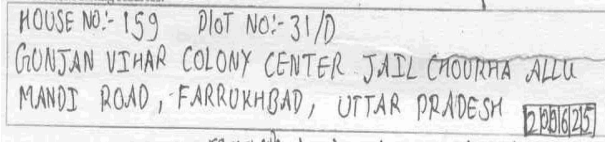 HOUSE NO:- 159 PLOT NO:- 31/D
GUNJAN VIHAR COLONY CENTER JAIL CHOURHA ALLU
MANDI ROAD, FARRUKHBAD, UTTAR PRADESH 209625